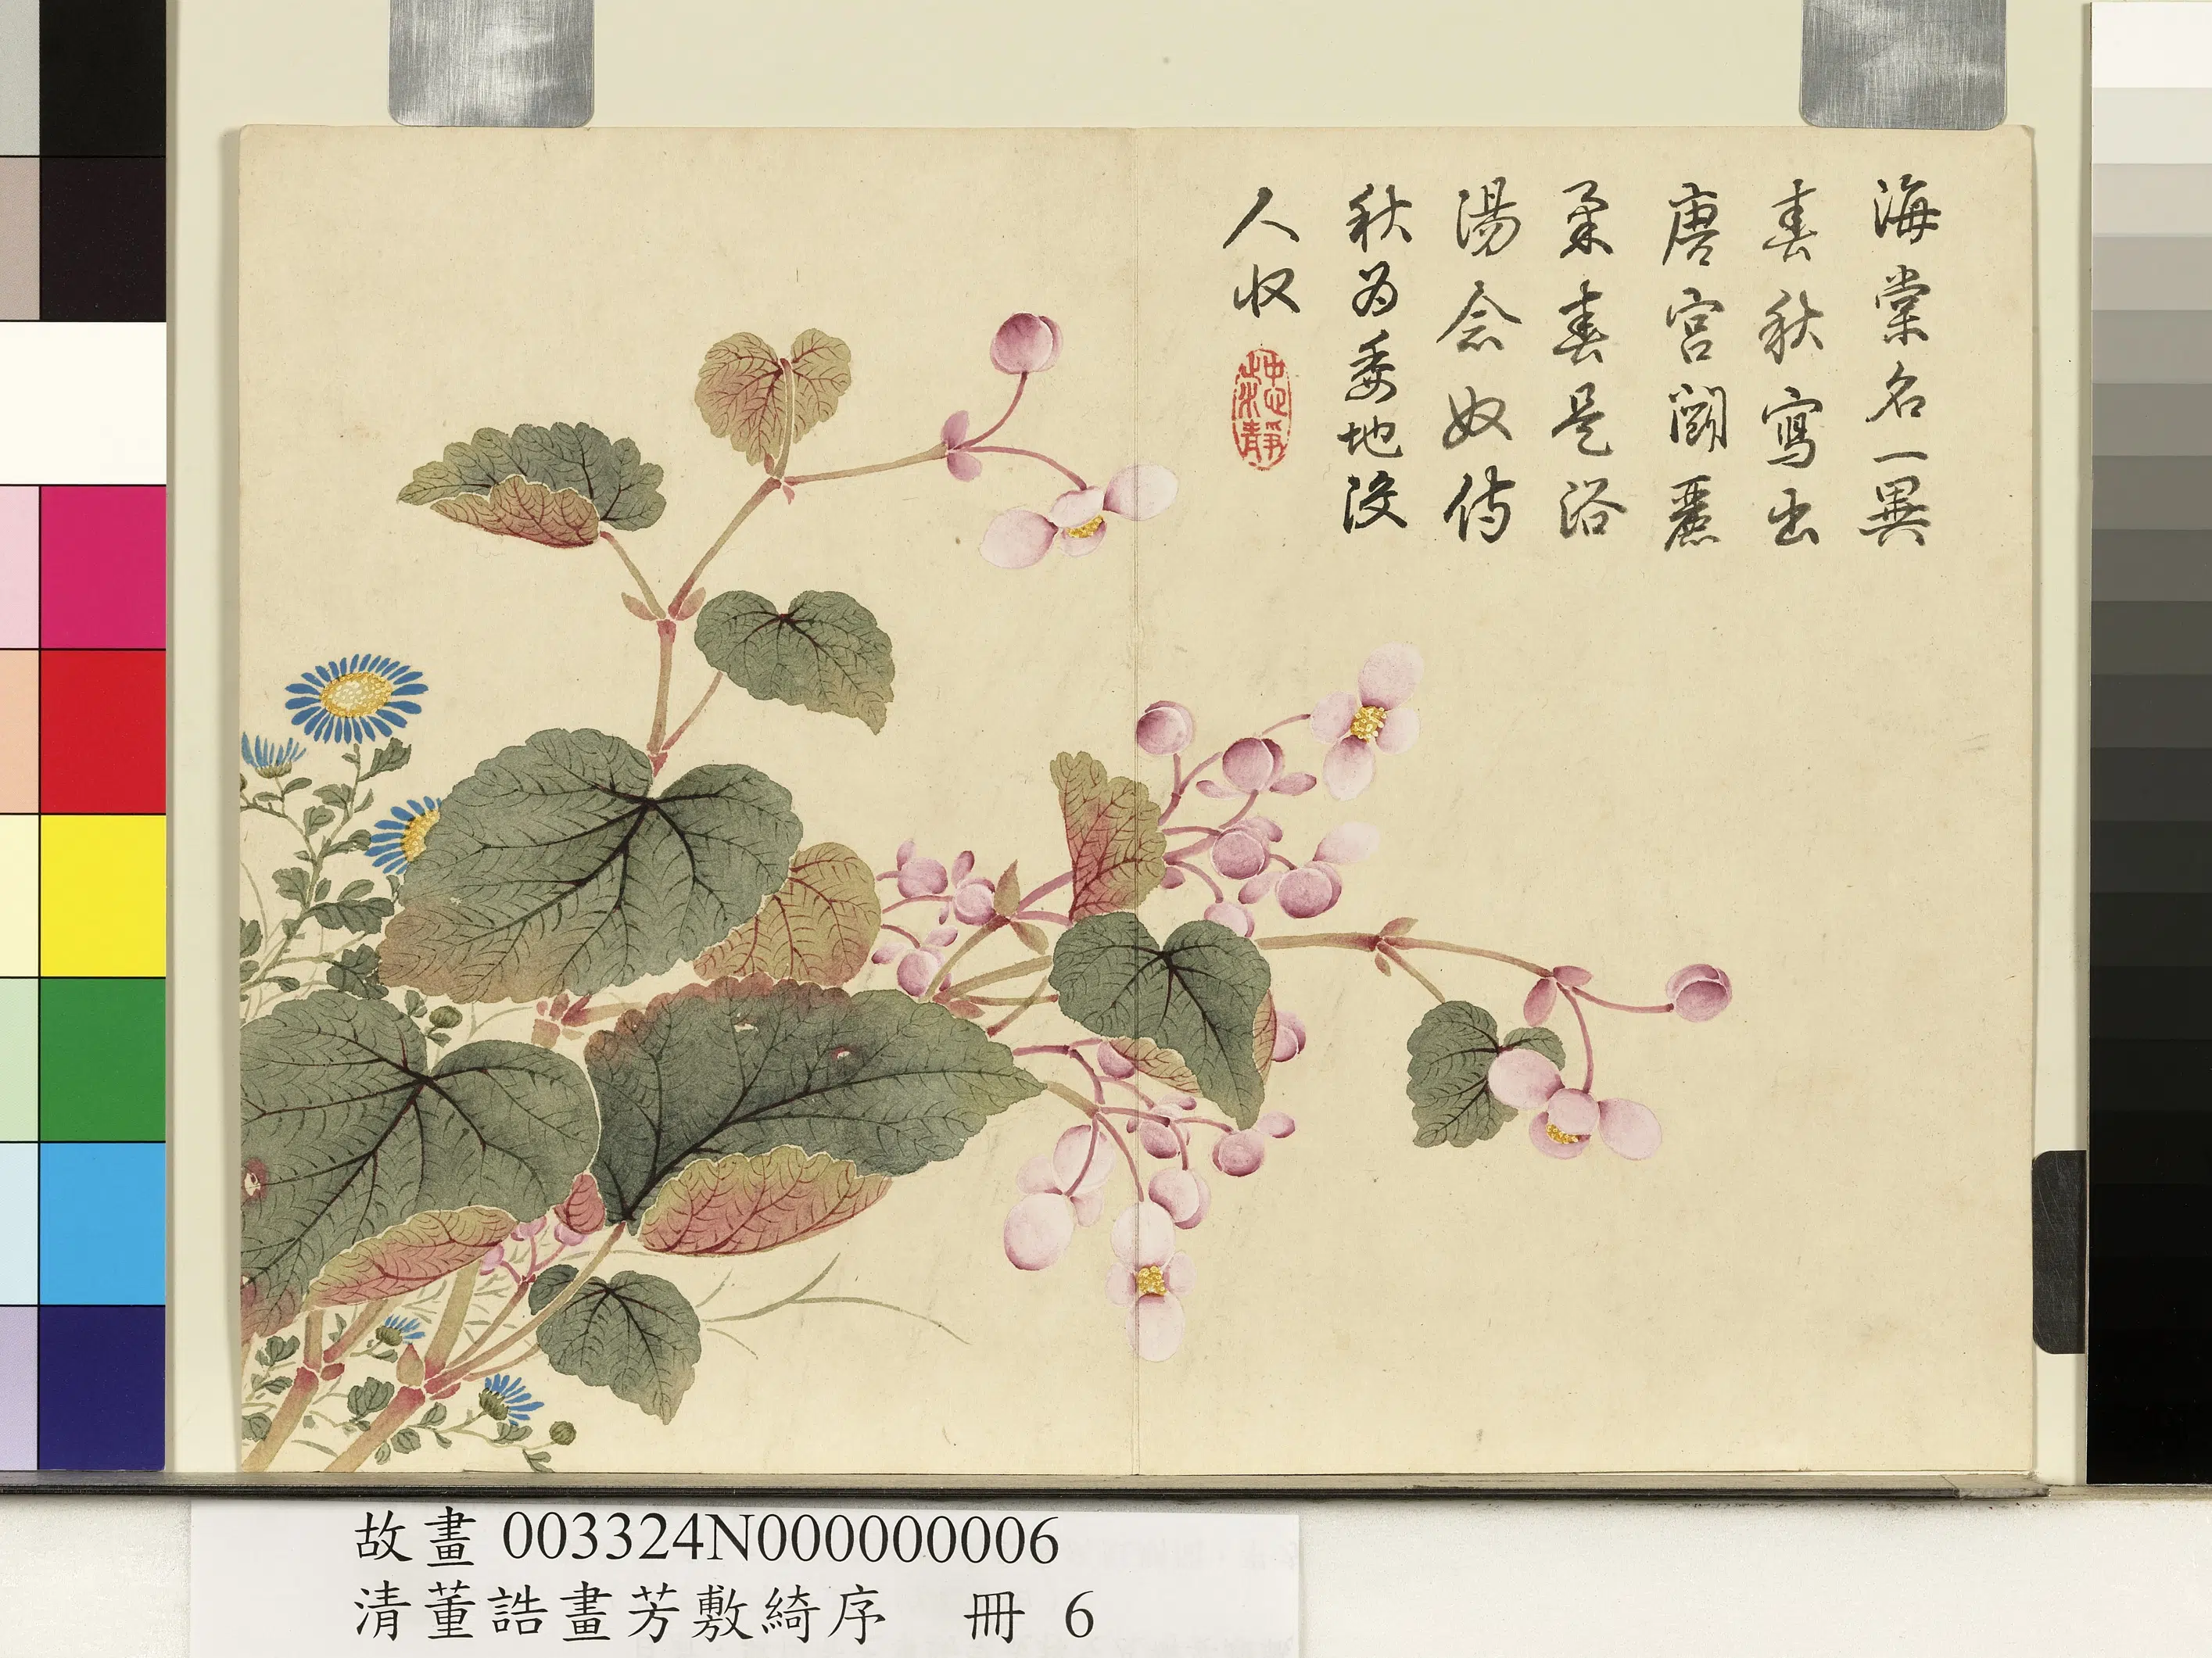 海棠名一異
春秋寫出
唐宮鬭麗
柔春是浴
湯念奴侍
秋為委地没
人収
故畫 003324N000000006
清董誥畫芳敷綺序 冊 6